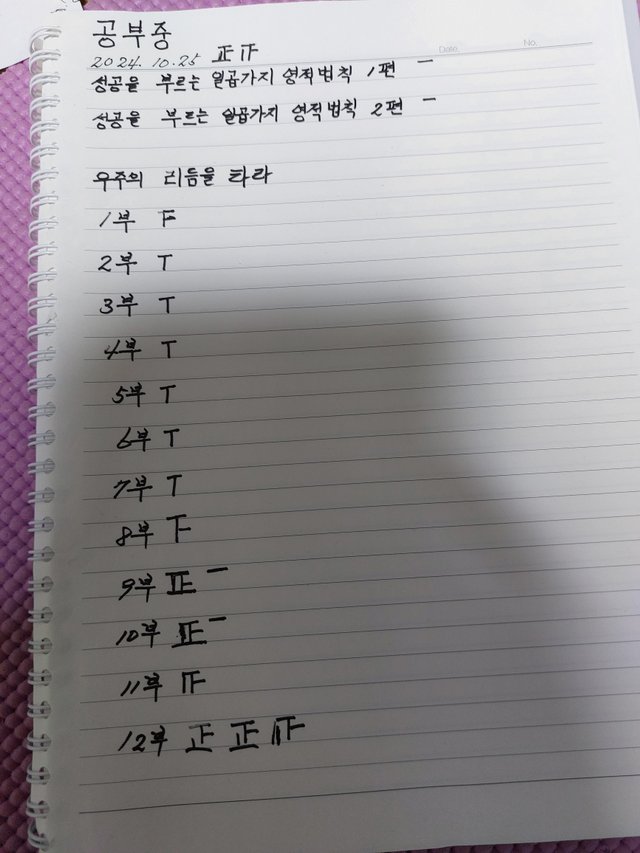 공부중
Date. No.
2024. 10.25 正 㱏
성공을 부르는 일곱가지 영적법칙 1편 一
성공을 부르는 일곱가지 영적법칙 2편 一
우주의 리듬을 타라
1부 F
2부 T
3부 T
4부 T
5부 T
6부 T
7부 T
8부 F
9부 正 一
10부 正 一
11부
12부 正 正